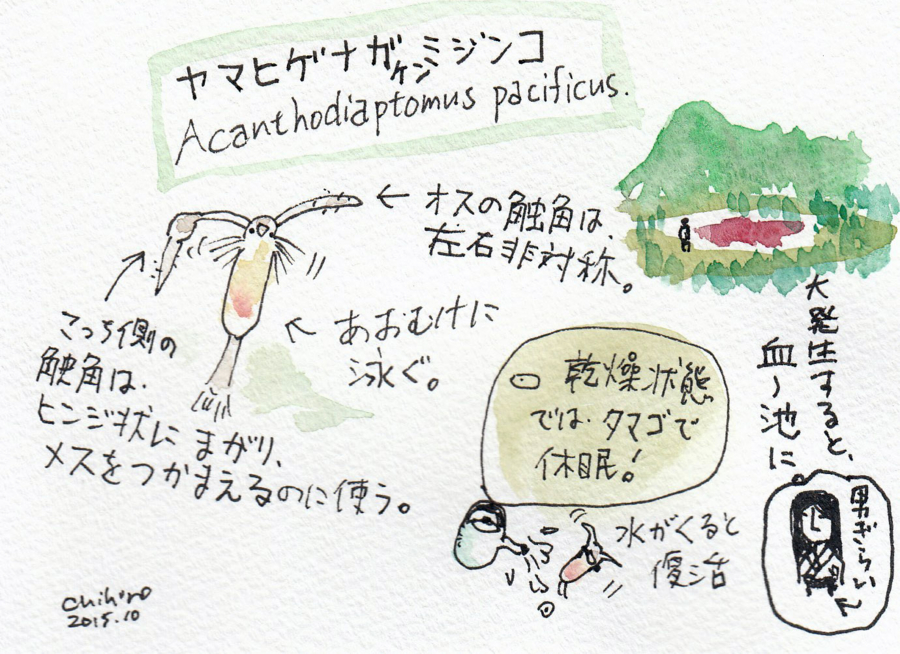 ヤマヒゲナガケンミジンコ
Acanthodiaptomus pacificus.
オスの触角は、
左右非対称。
こっち側の
触角は、
ヒンジ状に まがり、
メスをつかまえるのに使う。
あおむけに
泳ぐ。
大発生すると、
血ノ池に
乾燥状態
では、タマゴで
休眠!
水がくると
復活
男ぎらい
chihiro
2015.10